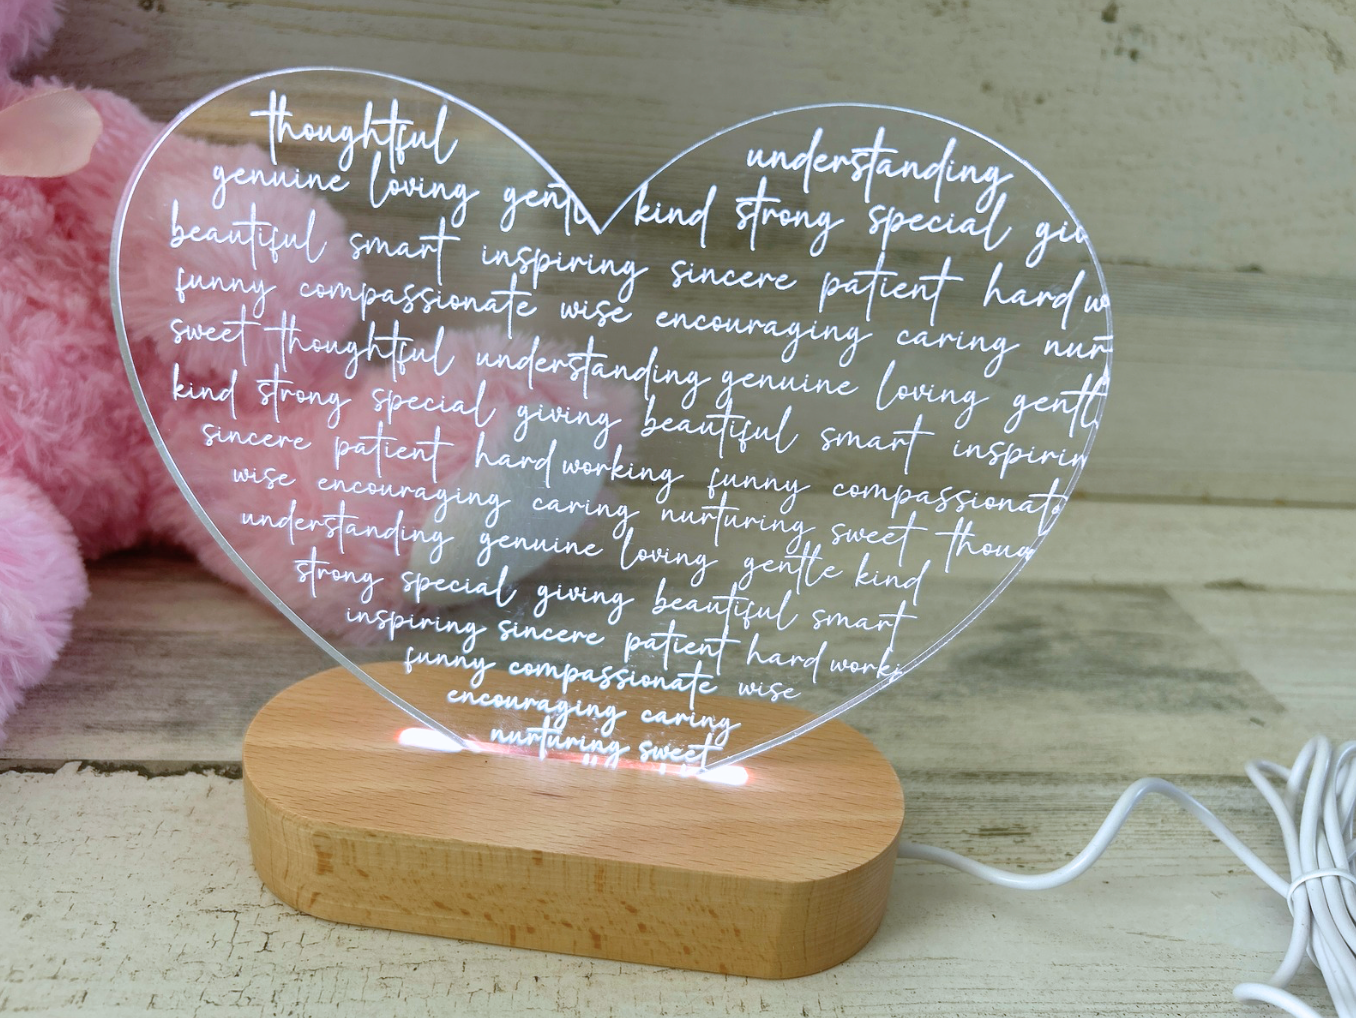 thoughtful understanding
genuine loving gentl kind strong special giv
beautiful smart inspiring sincere patient hard w
funny compassionate wise encouraging caring nur
sweet thoughtful understanding genuine loving gentl
kind strong special giving beautiful smart inspirin
sincere patient hard working funny compassionat
wise encouraging caring nurturing sweet thoug
understanding genuine loving gentle kind
strong special giving beautiful smart
inspiring sincere patient hard worki
funny compassionate wise
encouraging caring
nurturing sweet